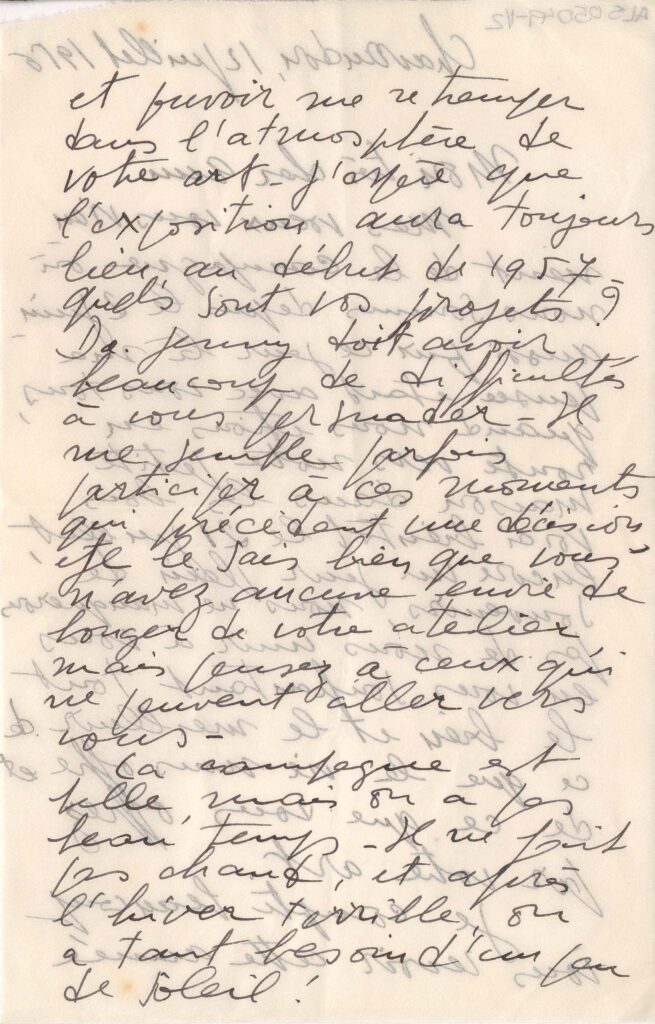 et pouvoir me retremper
dans l'atmosphère de
votre art - J'espère que
l'exposition aura toujours
lieu au début de 1957 -
quels sont vos projets ?
Da. Jenny doit avoir
beaucoup de difficultés
à vous persuader - Il
me semble parfois
participer à ces moments
qui précèdent une décision
et je le sais bien que vous
n'avez aucune envie de
bouger de votre atelier
mais pensez à ceux qui
ne peuvent aller vers
vous -
La campagne est
belle, mais on a pas
beau temps - Il ne fait
pas chaud, et après
l'hiver terrible, on
a tant besoin d'un peu
de soleil !